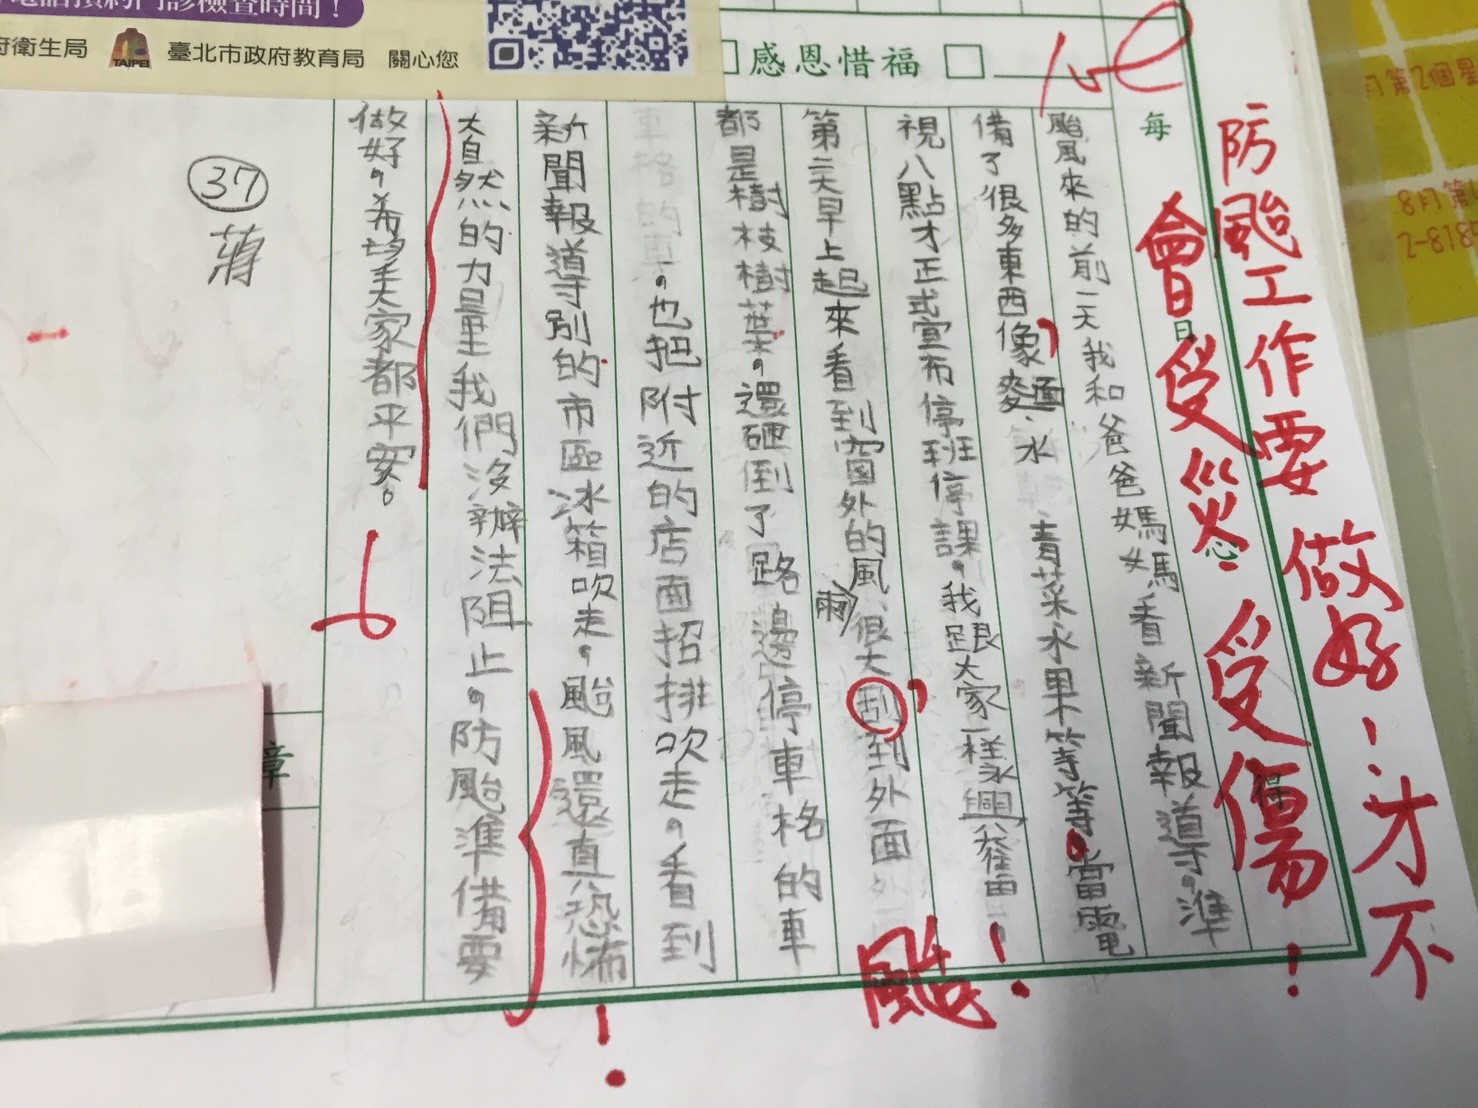 電話預約門診檢查時間！
府衛生局 臺北市政府教育局 關心您
TAIPEI
感恩惜福
每日心得
颱風來的前一天我和爸爸媽媽看新聞報導，準
備了很多東西，像麵麥、水、青菜水果等等。當電
視八點才正式宣布停班停課，我跟大家一樣興奮！
第二天早上起來看到窗外的風、雨很大，刮到外面
都是樹枝樹葉，還砸倒了路邊停車格的車
，也把附近的店面招排吹走，看到
新聞報導別的市區冰箱吹走，颱風還真恐怖
大自然的力量我們沒辦法阻止，防颱準備要
做好，希望大家都平安。
37 蔣
章
颱！
防颱工作要做好！才不
會受災、受傷！
月第2個星
8月第
2-8185